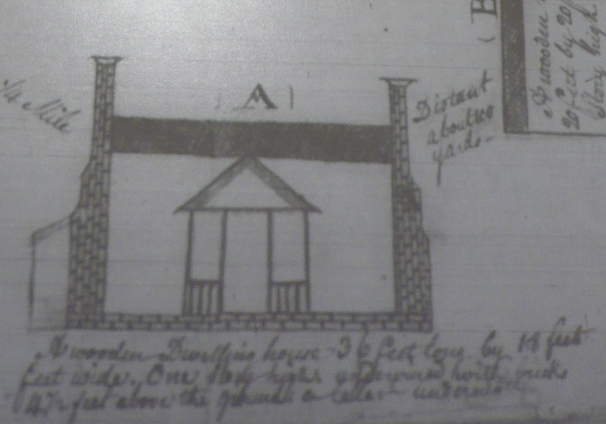 A
1/4 Mile
Distant
about
yards-
B
A wooden
20 feet by 20
Story high.
A wooden Dwelling house 36 feet long by 18 feet
feet wide. One story high underpined with brick
4 1/2 feet above the ground a cellar underneath